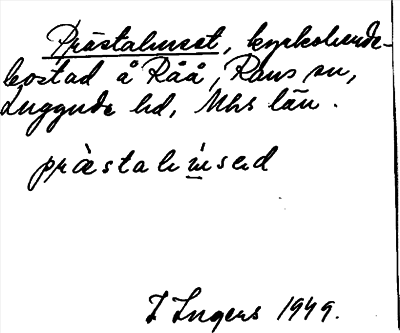 Prästahuset, kyrkoherde-
bostad å Råå, Raus sn,
Luggude hd, Mhs län.
prästahúsed
I Ingers 1949.